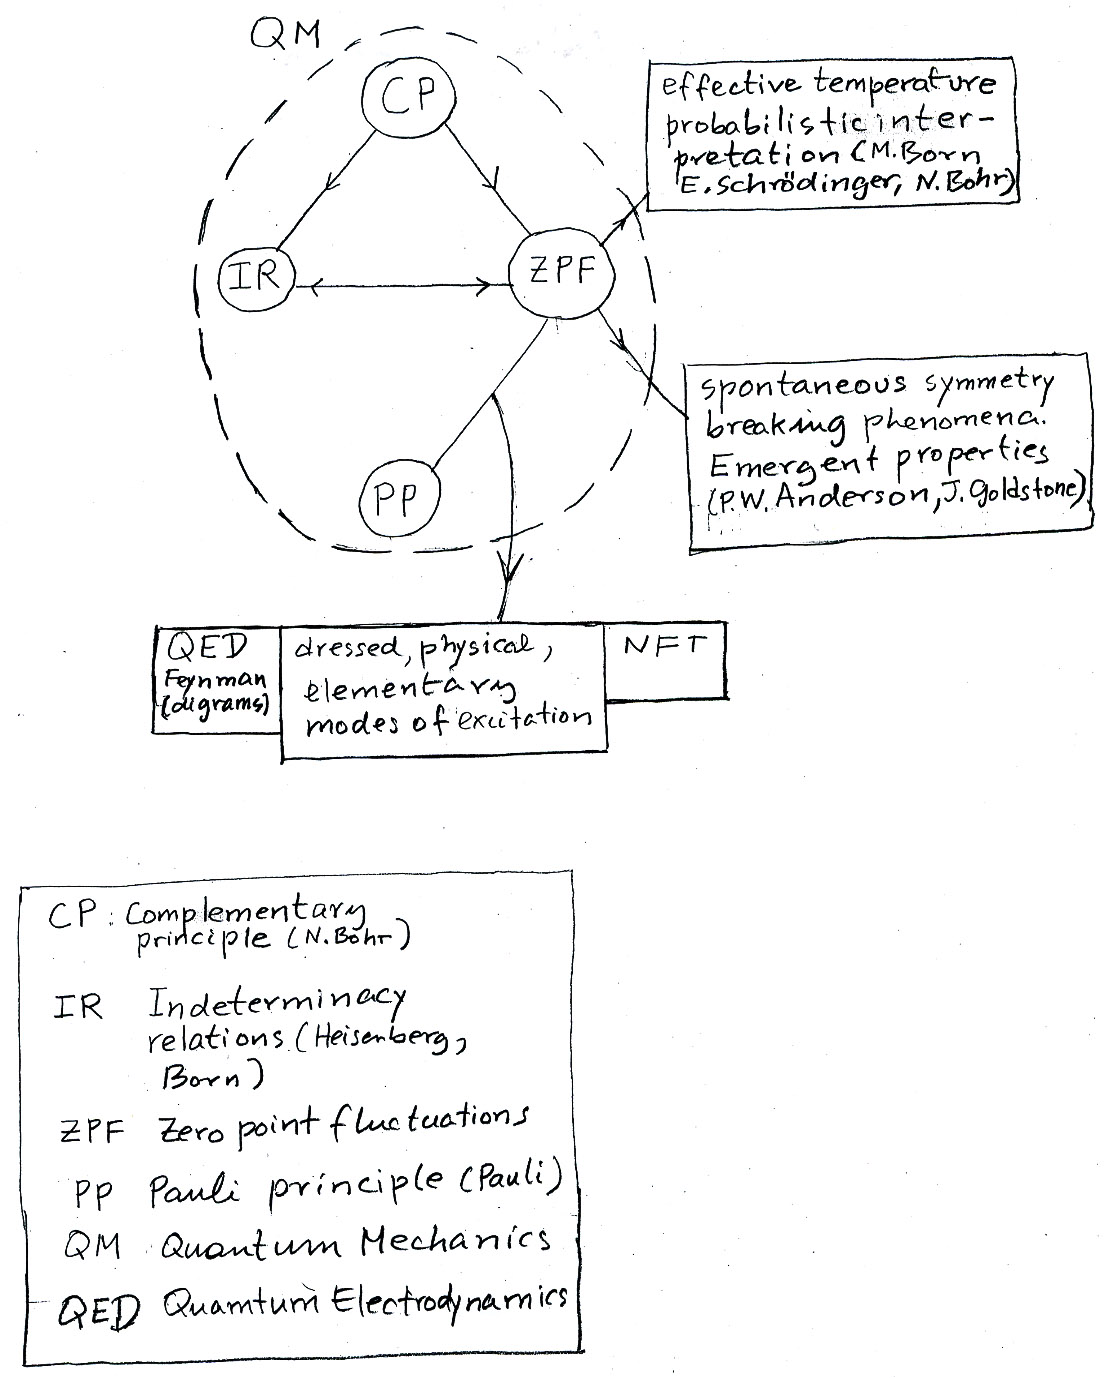 QM
CP
effective temperature
probabilistic inter-
pretation (M.Born
E.Schrödinger, N.Bohr)
IR
ZPF
spontaneous symmetry
breaking phenomena.
Emergent properties
(P.W. Anderson, J. Goldstone)
PP
QED
Feynman
(digrams)
dressed, physical,
elementary
modes of excitation
NFT
CP: Complementary
principle (N.Bohr)
IR Indeterminacy
relations (Heisenberg,
Born)
ZPF Zero point fluctuations
PP Pauli principle (Pauli)
QM Quantum Mechanics
QED Quamtum Electrodynamics